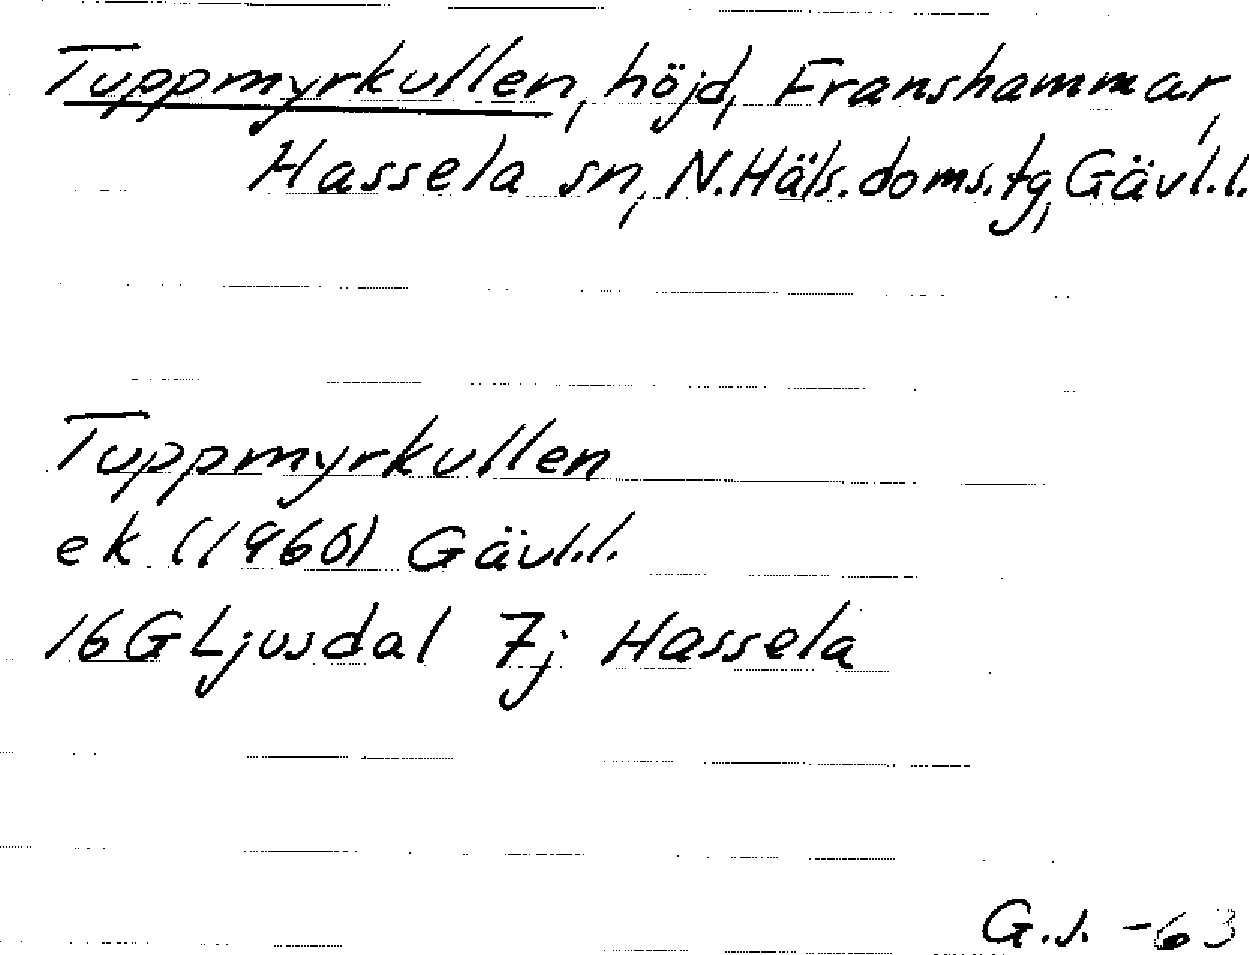 Tuppmyrkullen, höjd, Franshammar,
Hassela sn, N.Häls.doms.tg, Gävl.l.
Tuppmyrkullen
ek (1960) Gävl.l.
16G Ljusdal 7j Hassela
G.J. -63